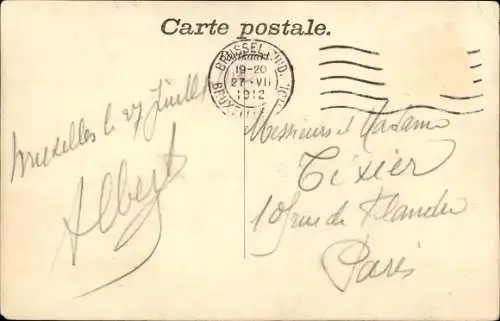 Carte postale.
BRUSSEL
19-20
27 VII
1912
BRUX
Bruxelles le 27 Juillet
Albert
Messieurs et Madame
Tixier
10 rue de Flandre
Paris